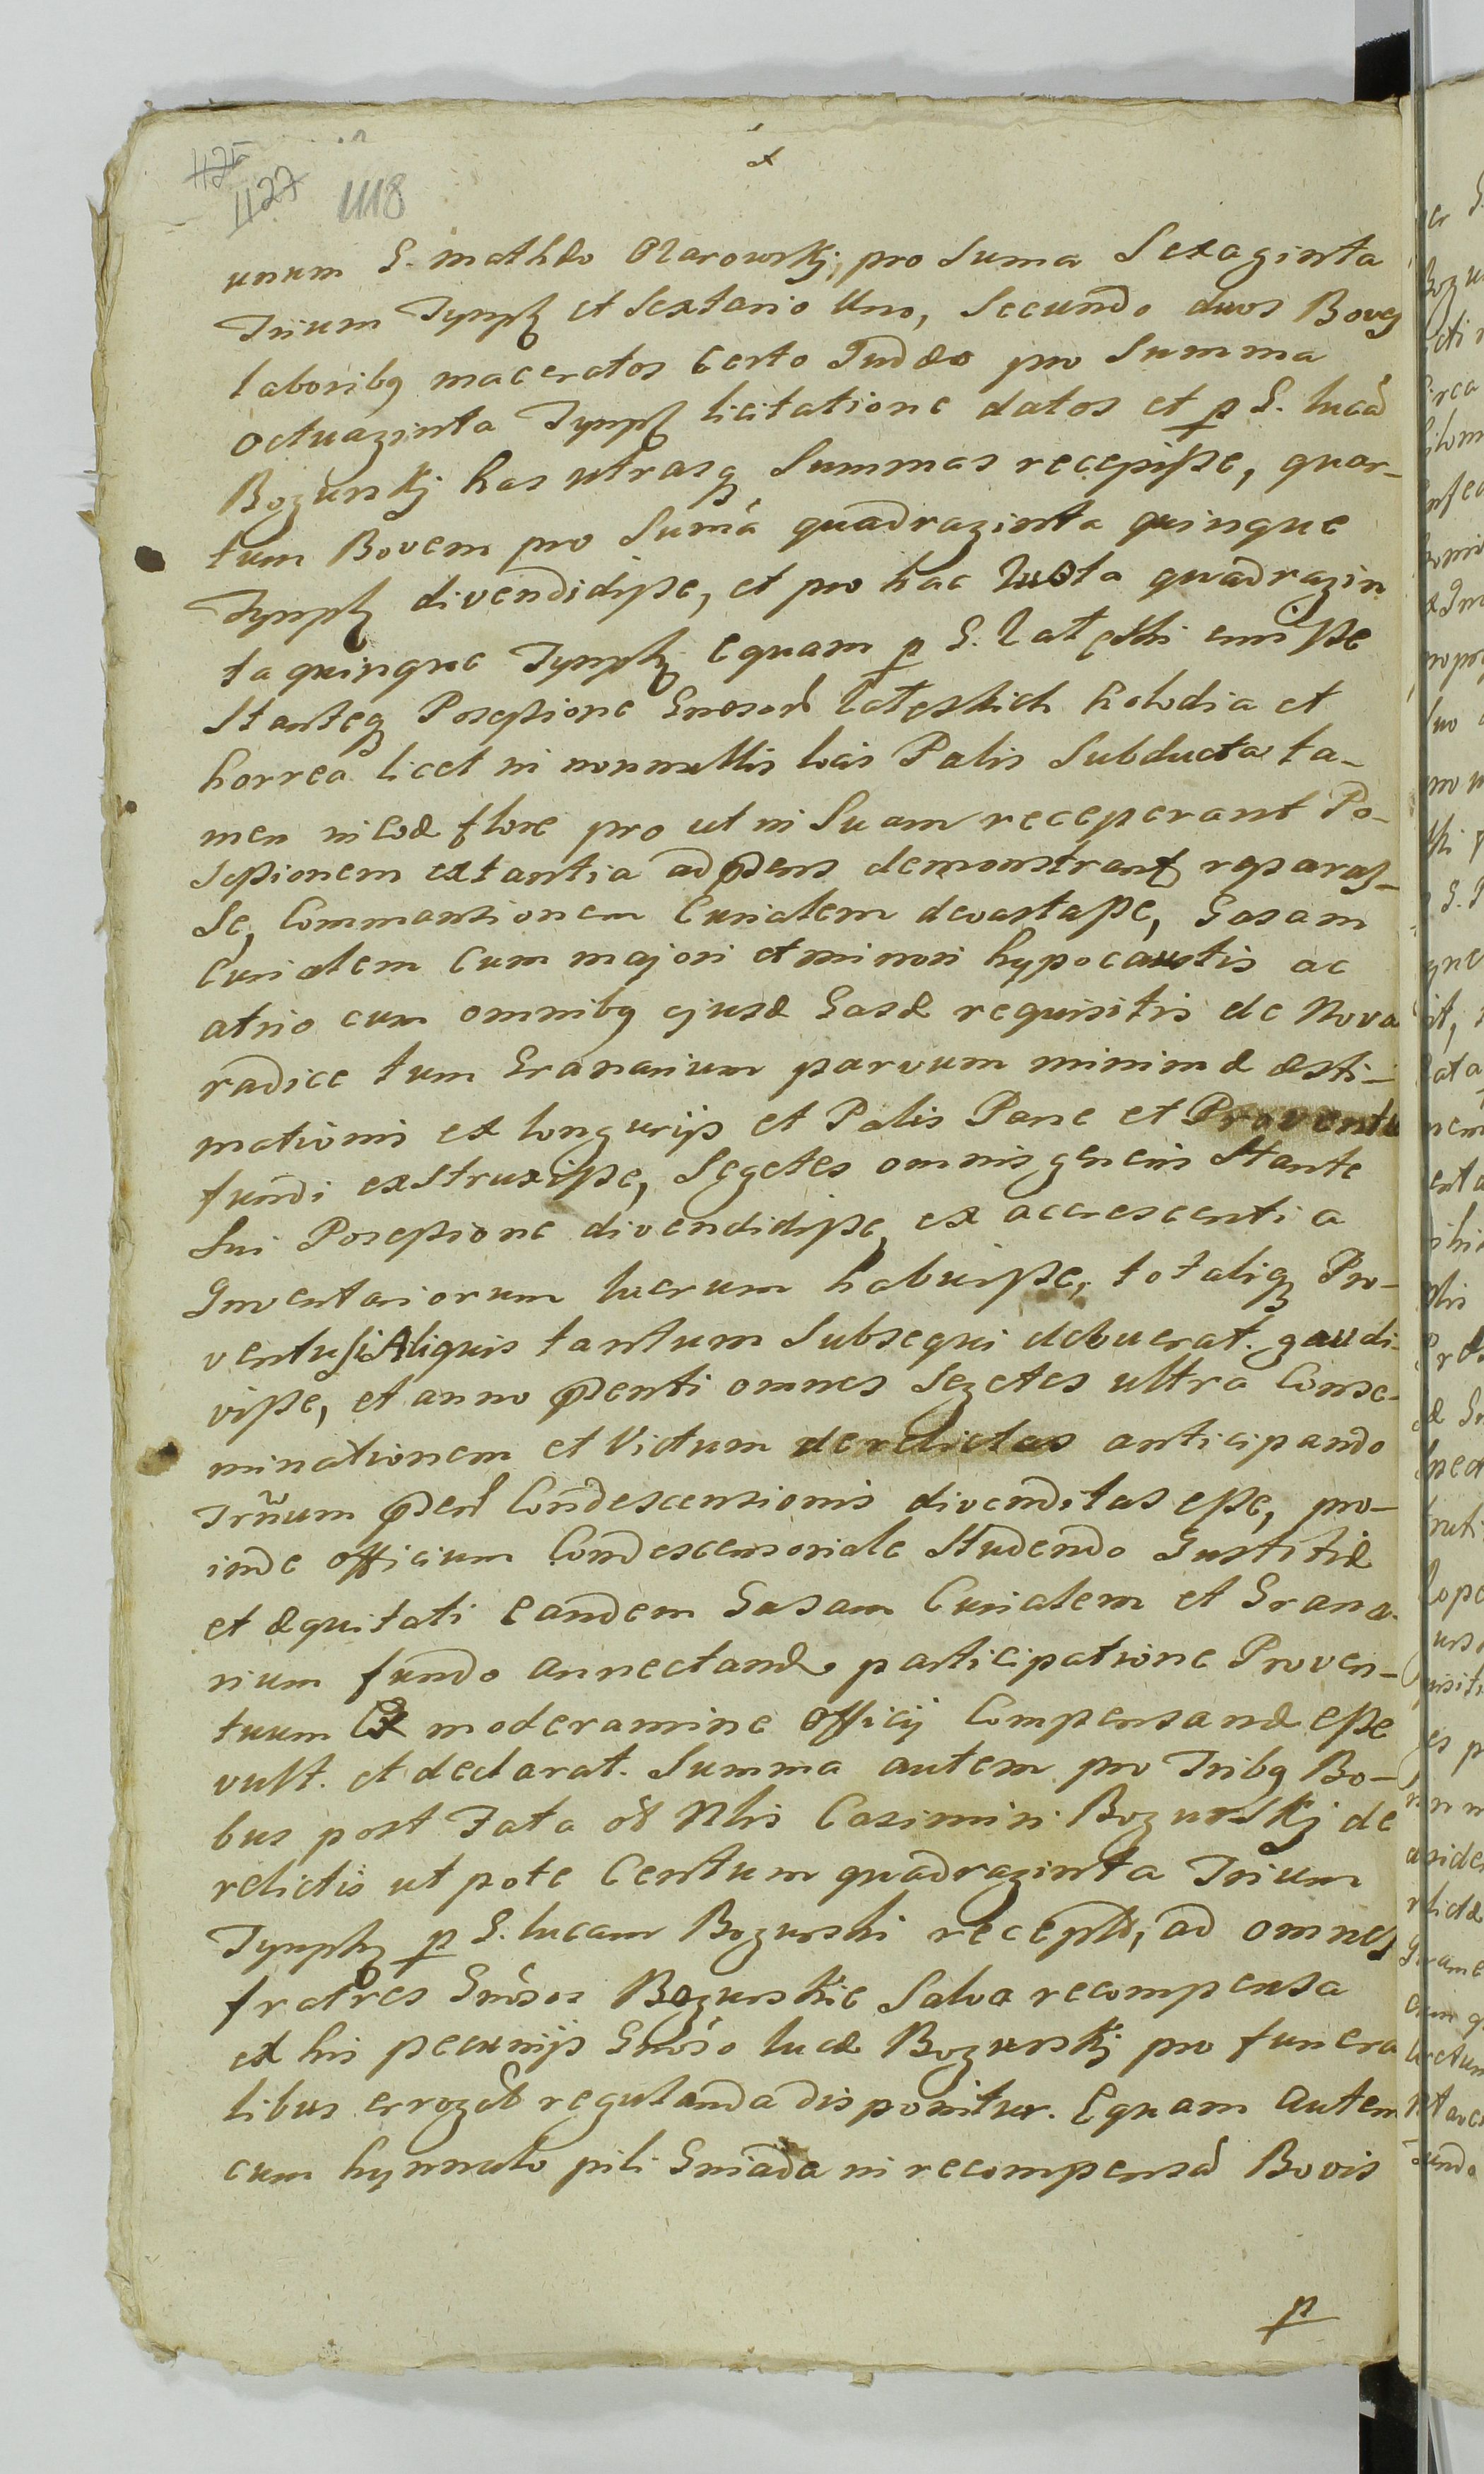 1125
1127 1118
unum G. mathæo Ożarowskj, pro Suma Sexaginta
Trium Tynph et Sextario Uno, Secundo duos Boves
laboribq maceratos Certo Judæo pro Summa
Octuaginta Tynph licitatione datos et p G. lucã
Bogurskj has utrasq Summas recepisse, quar-
tum Bovem pro Sumã quadraginta quinque
Tynph divendidisse, et pro hac quadragin
ta quinque Tynph Equam p G. emisse
Stanteq Possessione Gnosorũ et
horrea licet in nonnullis locis Palis Subducta ta-
men in eodẽ flore pro ut in Suam receperant Po-
sessionem extantia ad pdens demonstrant reparas-
Se, Commansionem Curialem devastasse, Gasam
Curialem Cum majori et minori hypocaustis ac
atrio cum omnibq ejusd Gasæ requisitis de Nova
radice tum Granarium parvum minimæ æsti-
mationis ex longurijs et Palis Pane et Proventu
fundi exstruxisse, Segetes omnis generis Stante
Sui Posessione divendidisse, ex accrescentia
Inventariorum lucrum habuisse, totaliq Pro-
ventu Si Aliquis tantum Subsequi debuerat. gaudi-
visse, et anno pdenti omnes Segetes ultra Conse-
minationem et Victum derelictas anticipando
Trñum pdeñ Condescensionis divenditas esse, pro-
inde officium Condescensoriale Studendo Justitiæ
et æquitati Eandem Gasam Curialem et Grana-
rium fundo annectand participatione Proven-
tuum Ex moderamine officij Compensand esse
vult. et declarat. Summa autem pro Tribq Bo-
bus post Fata Nlis Casimiri Bogurskj de
relictis ut pote Centum quadraginta Trium
Tynph p G. lucam Bogurski recepta, ad omnes
fratres Gnõsos Bogurskie Salva recompensa
ex his pecunijs Gnõso lucæ Bogurskj pro funera
libus regulanda disponitur. Equam autem
cum hynnulo pili Gniada in recompensã Bovis
p